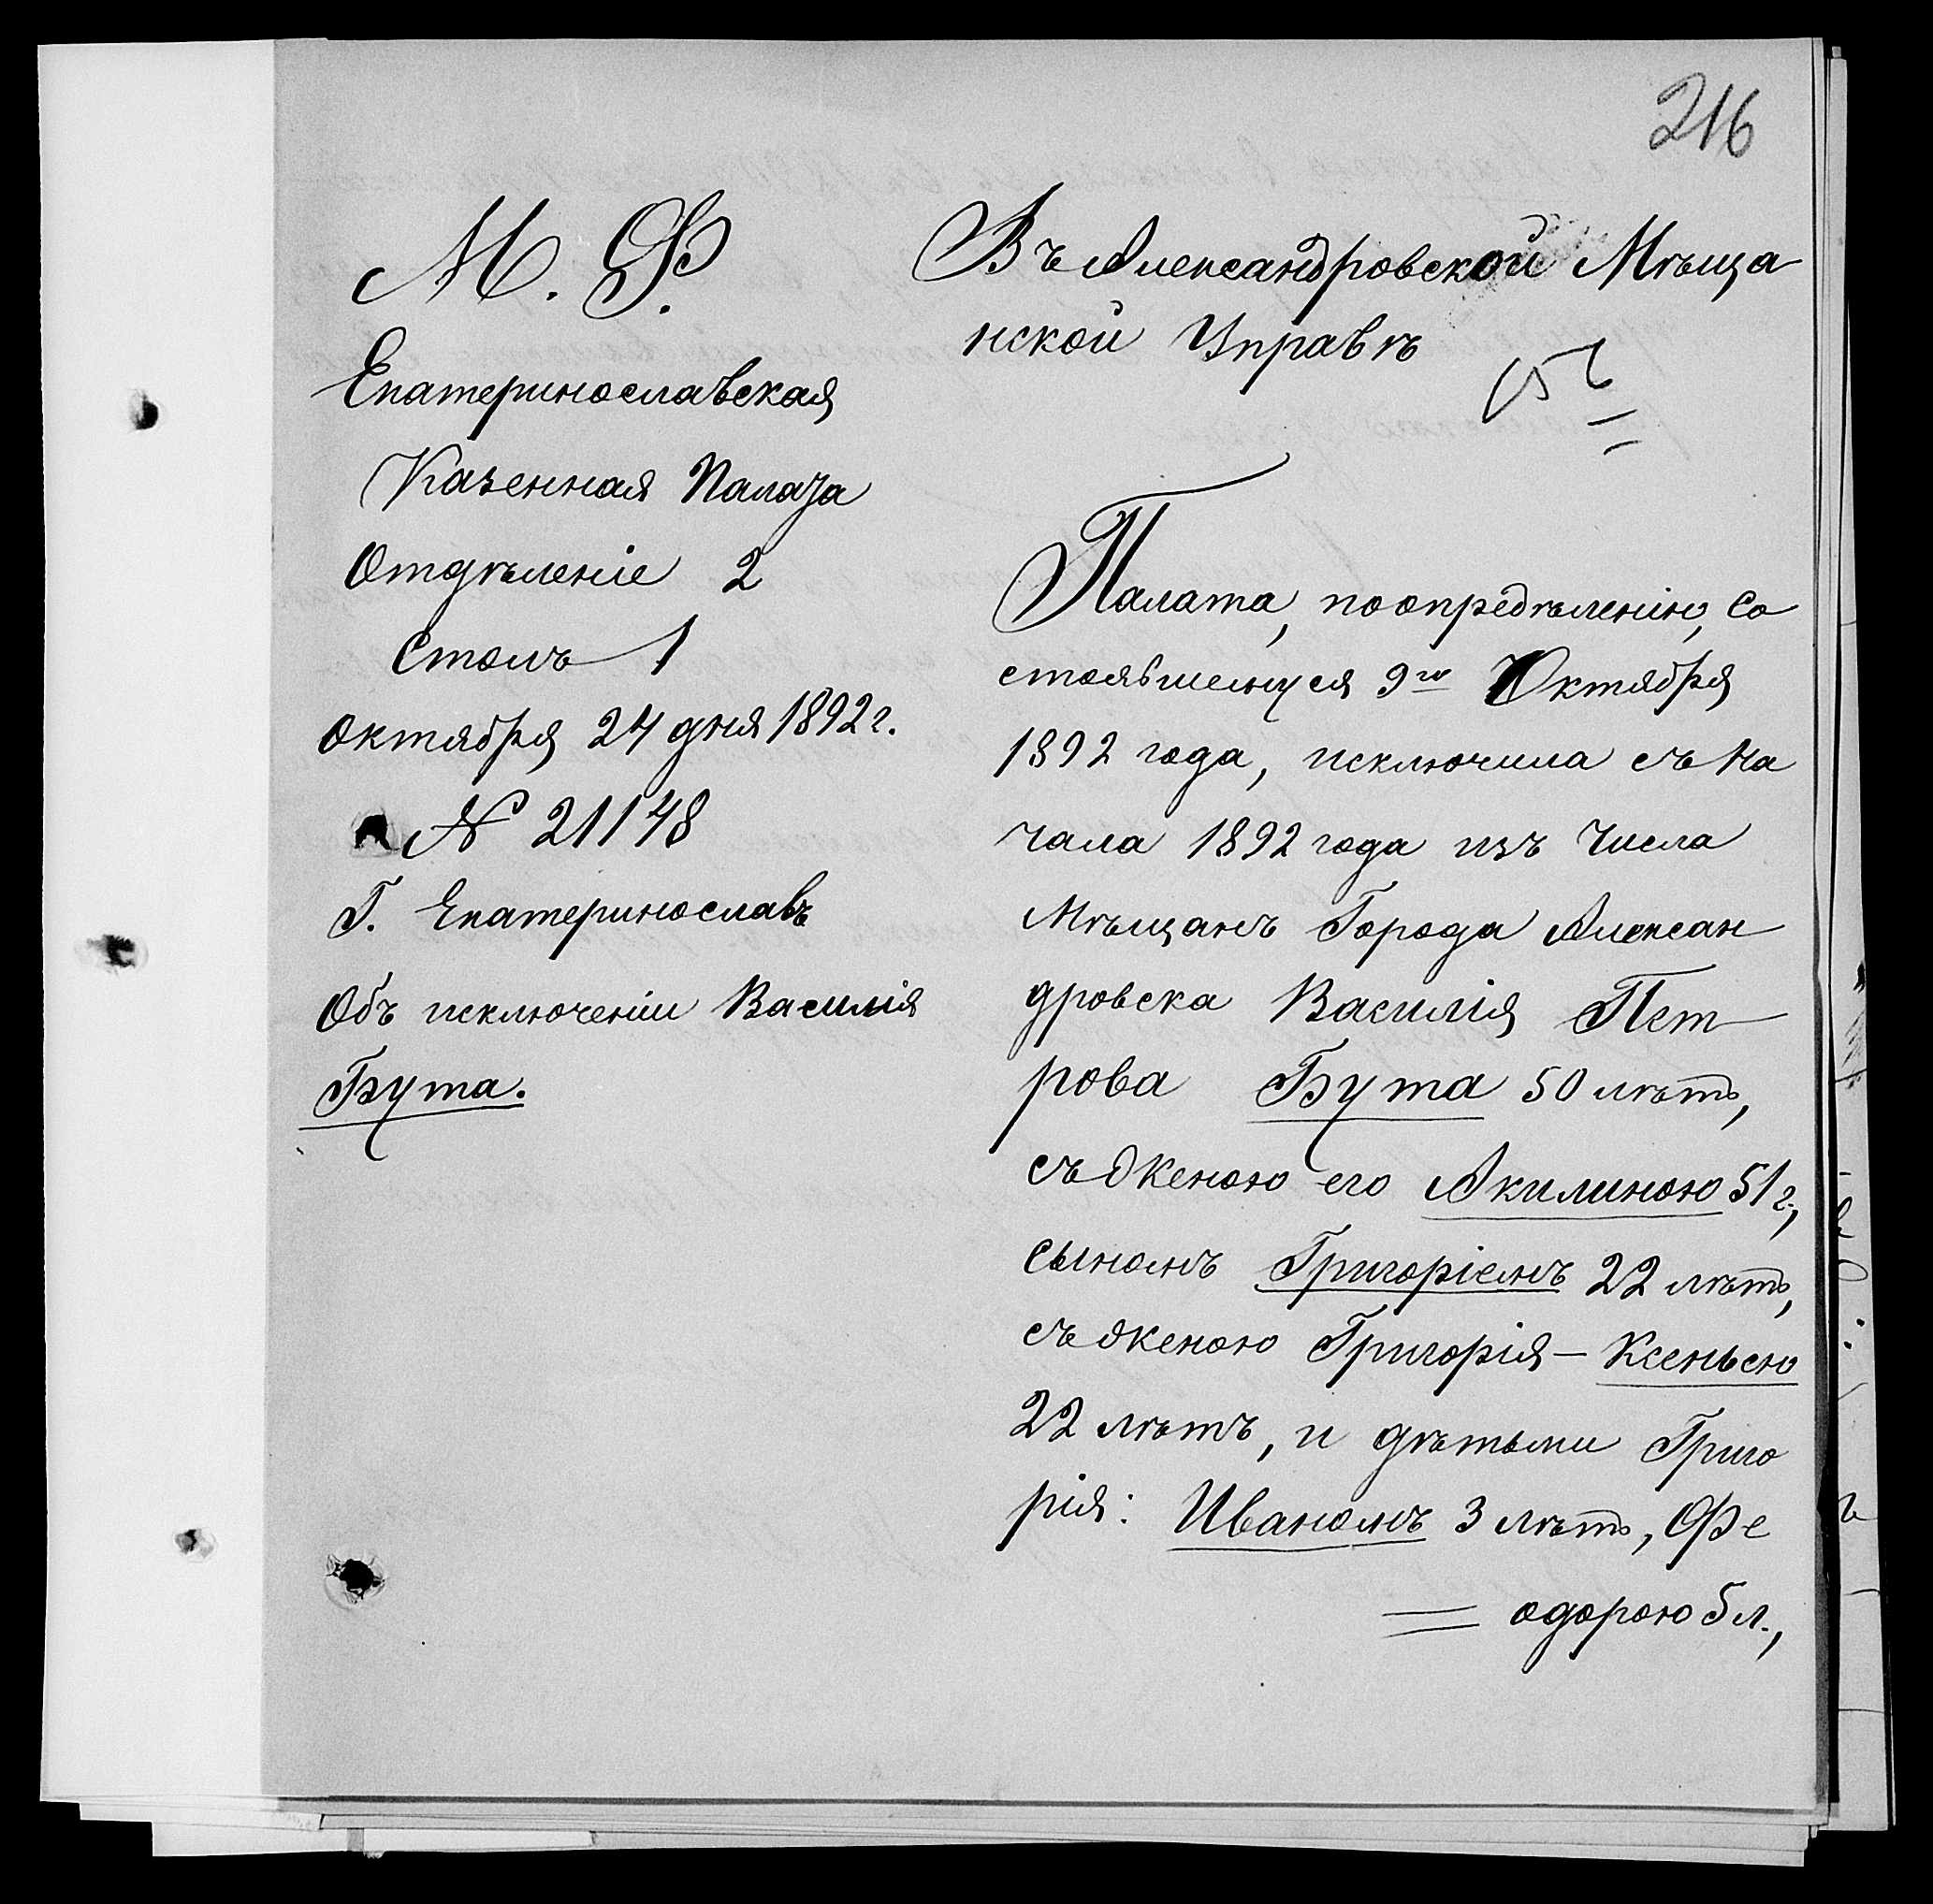 216
М. Ф.
Екатеринославская
Казенная Палата
Отдѣленіе 2
Столъ 1
Октября 24 дня 1892 г.
№ 21148
Г. Екатеринославъ
Объ исключеніи Василія
Бута.
Въ Александровской Мѣща
нской Управѣ
Палата, по опредѣленію, Со
стоявшемуся 9го Октября
1892 года, исключила съ На
чала 1892 года изъ Числа
Мѣщанъ Города Алексан
дровска Василія Пет
рова Бута 50 лѣтъ,
съ женою его Акилиною 51 г.,
сыномъ Григоріемъ 22 лѣтъ,
съ женою Григорія – Ксеньею
22 лѣтъ, и дѣтьми Григо
рія: Иваномъ 3 лѣтъ, Фе
= одорою 5 л.,